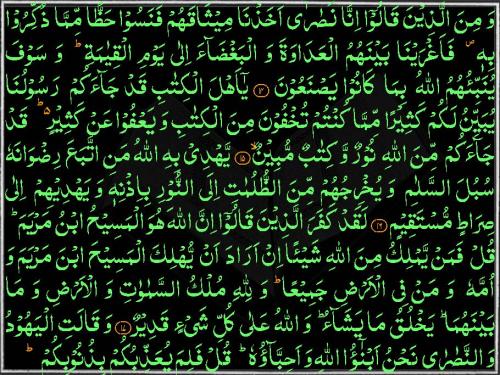 وَ مِنَ الَّذِيْنَ قَالُوْٓا اِنَّا نَصٰرٰٓى اَخَذْنَا مِيْثَاقَهُمْ فَنَسُوْا حَظًّا مِّمَّا ذُكِّرُوْا
بِهٖ ۪ فَاَغْرَيْنَا بَيْنَهُمُ الْعَدَاوَةَ وَ الْبَغْضَآءَ اِلٰى يَوْمِ الْقِيٰمَةِ ؕ وَ سَوْفَ
يُنَبِّئُهُمُ اللّٰهُ بِمَا كَانُوْا يَصْنَعُوْنَ ۱۴ يٰٓاَهْلَ الْكِتٰبِ قَدْ جَآءَكُمْ رَسُوْلُنَا
يُبَيِّنُ لَكُمْ كَثِيْرًا مِّمَّا كُنْتُمْ تُخْفُوْنَ مِنَ الْكِتٰبِ وَيَعْفُوْا عَنْ كَثِيْرٍ ؕ قَدْ
جَآءَكُمْ مِّنَ اللّٰهِ نُوْرٌ وَّ كِتٰبٌ مُّبِيْنٌ ۱۵ يَّهْدِيْ بِهِ اللّٰهُ مَنِ اتَّبَعَ رِضْوَانَهٗ
سُبُلَ السَّلٰمِ وَ يُخْرِجُهُمْ مِّنَ الظُّلُمٰتِ اِلَى النُّوْرِ بِاِذْنِهٖ وَ يَهْدِيْهِمْ اِلٰى
صِرَاطٍ مُّسْتَقِيْمٍ ۱۶ لَقَدْ كَفَرَ الَّذِيْنَ قَالُوْٓا اِنَّ اللّٰهَ هُوَ الْمَسِيْحُ ابْنُ مَرْيَمَ ؕ
قُلْ فَمَنْ يَّمْلِكُ مِنَ اللّٰهِ شَيْـًٔا اِنْ اَرَادَ اَنْ يُّهْلِكَ الْمَسِيْحَ ابْنَ مَرْيَمَ وَ
اُمَّهٗ وَ مَنْ فِي الْاَرْضِ جَمِيْعًا ؕ وَ لِلّٰهِ مُلْكُ السَّمٰوٰتِ وَ الْاَرْضِ وَ مَا
بَيْنَهُمَا ؕ يَخْلُقُ مَا يَشَآءُ ؕ وَ اللّٰهُ عَلٰى كُلِّ شَيْءٍ قَدِيْرٌ ۱۷ وَ قَالَتِ الْيَهُوْدُ
وَ النَّصٰرٰى نَحْنُ اَبْنٰٓؤُا اللّٰهِ وَ اَحِبَّآؤُهٗ ؕ قُلْ فَلِمَ يُعَذِّبُكُمْ بِذُنُوْبِكُمْ ؕ